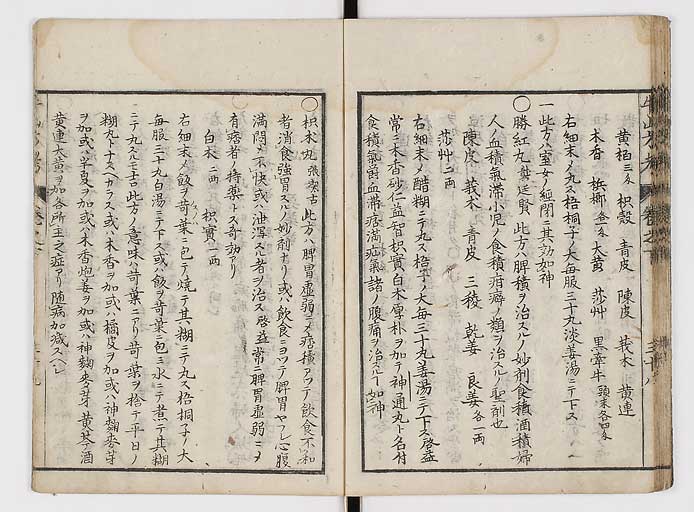 黄栢三匁 枳殻 青皮 陳皮 莪朮 黄連
木香 梹榔各壹匁 大黄 莎艸 黒牽牛頭末各四匁
右細末ノ丸ス梧桐子ノ大毎服三十丸淡姜湯ニテ下ス
一此方ハ室女ノ經閉ニ其効如神
〇勝紅丸龔廷賢 此方ハ脾積ヲ治スルノ妙剤食積酒積婦
人ノ血積氣滞小児ノ食積疳癖ノ類ヲ治スルノ聖剤也
陳皮 莪朮 青皮 三稜 乾姜 良姜各一両
莎艸二両
右細末ノ醋糊ニテ丸ス梧子ノ大毎三十丸姜湯ニテ下ス啓益
常ニ木香砂仁益智枳實白朮厚朴ヲ加テ神通丸ト名付
食積氣欝血滞痞満疝氣諸ノ腹痛ヲ治スルコ如神
〇枳朮丸張潔古 此方ハ脾胃虚弱ニメ痞積アツテ飲食不和
者消食強胃スルノ妙剤ナリ或ハ飲食ニヨツテ脾胃ヤフレ心腹
満悶メ不快或ハ泄瀉スル者ヲ治ス啓益常ニ脾胃虚弱ニメ
有痞者ノ持薬トス奇効アリ
白朮二両 枳實一両
右細末ノ飯ヲ荷葉ニ包テ焼テ其糊ニテ丸ス梧桐子ノ大
毎服三十丸白湯ニテ下ス或ハ飯ヲ荷葉ニ包ミ水ニテ煮テ其糊
ニテ丸ルモ吉此方ノ意味ハ荷葉ニアリ荷葉ヲ捨テ平日ノ
糊丸トナスヘカラス或ハ木香ヲ加或ハ橘皮ヲ加或ハ神麹麥芽
ヲ加或ハ半夏ヲ加或ハ木香炮姜ヲ加或ハ神麹麥芽黄芩酒
黄連大黄ヲ加各所主之症アリ随病加減スヘシ